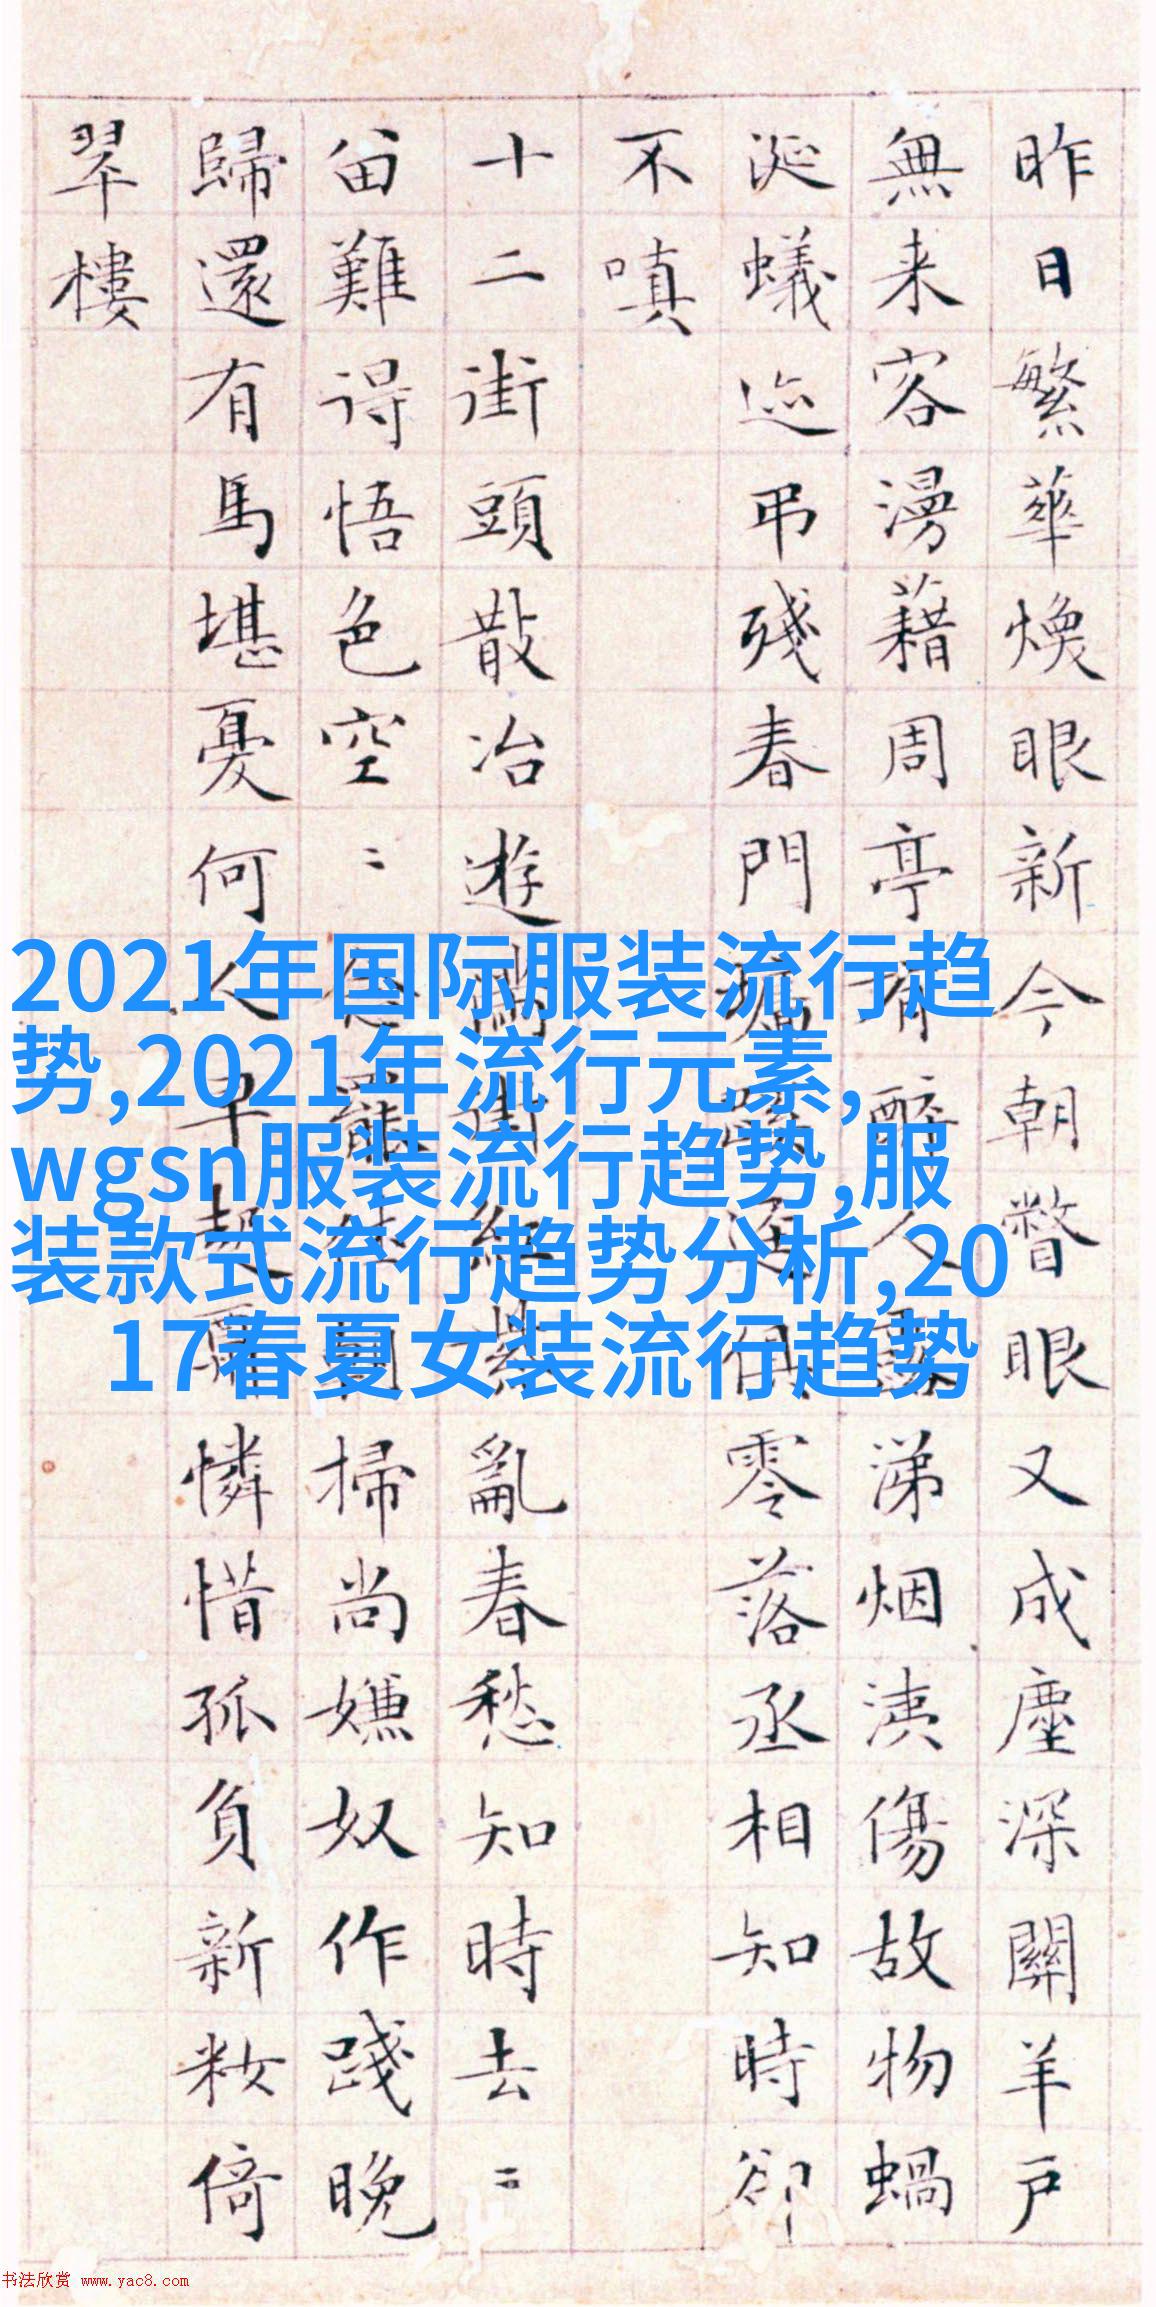 昨日繁華煥眼新今朝瞥眼又成塵深關羊戶
無来客漫藉周亭有醉人露涕烟洟傷故物蝸
涎蟻迹弔殘春門零落丞相知時卻
不嗔
十二街頭散冶遊滿街紅紫亂春愁知時去〻
畱難得悟色空〻掃尚嫌奴作踐晚
歸還有馬堪憂何人早起憐惜孤負新妝倚
翠樓
2021年国际服装流行趋
势,2021年流行元素,
wgsn服装流行趋势,服
装款式流行趋势分析,20
17春夏女装流行趋势
书法欣赏 www.yac8.com